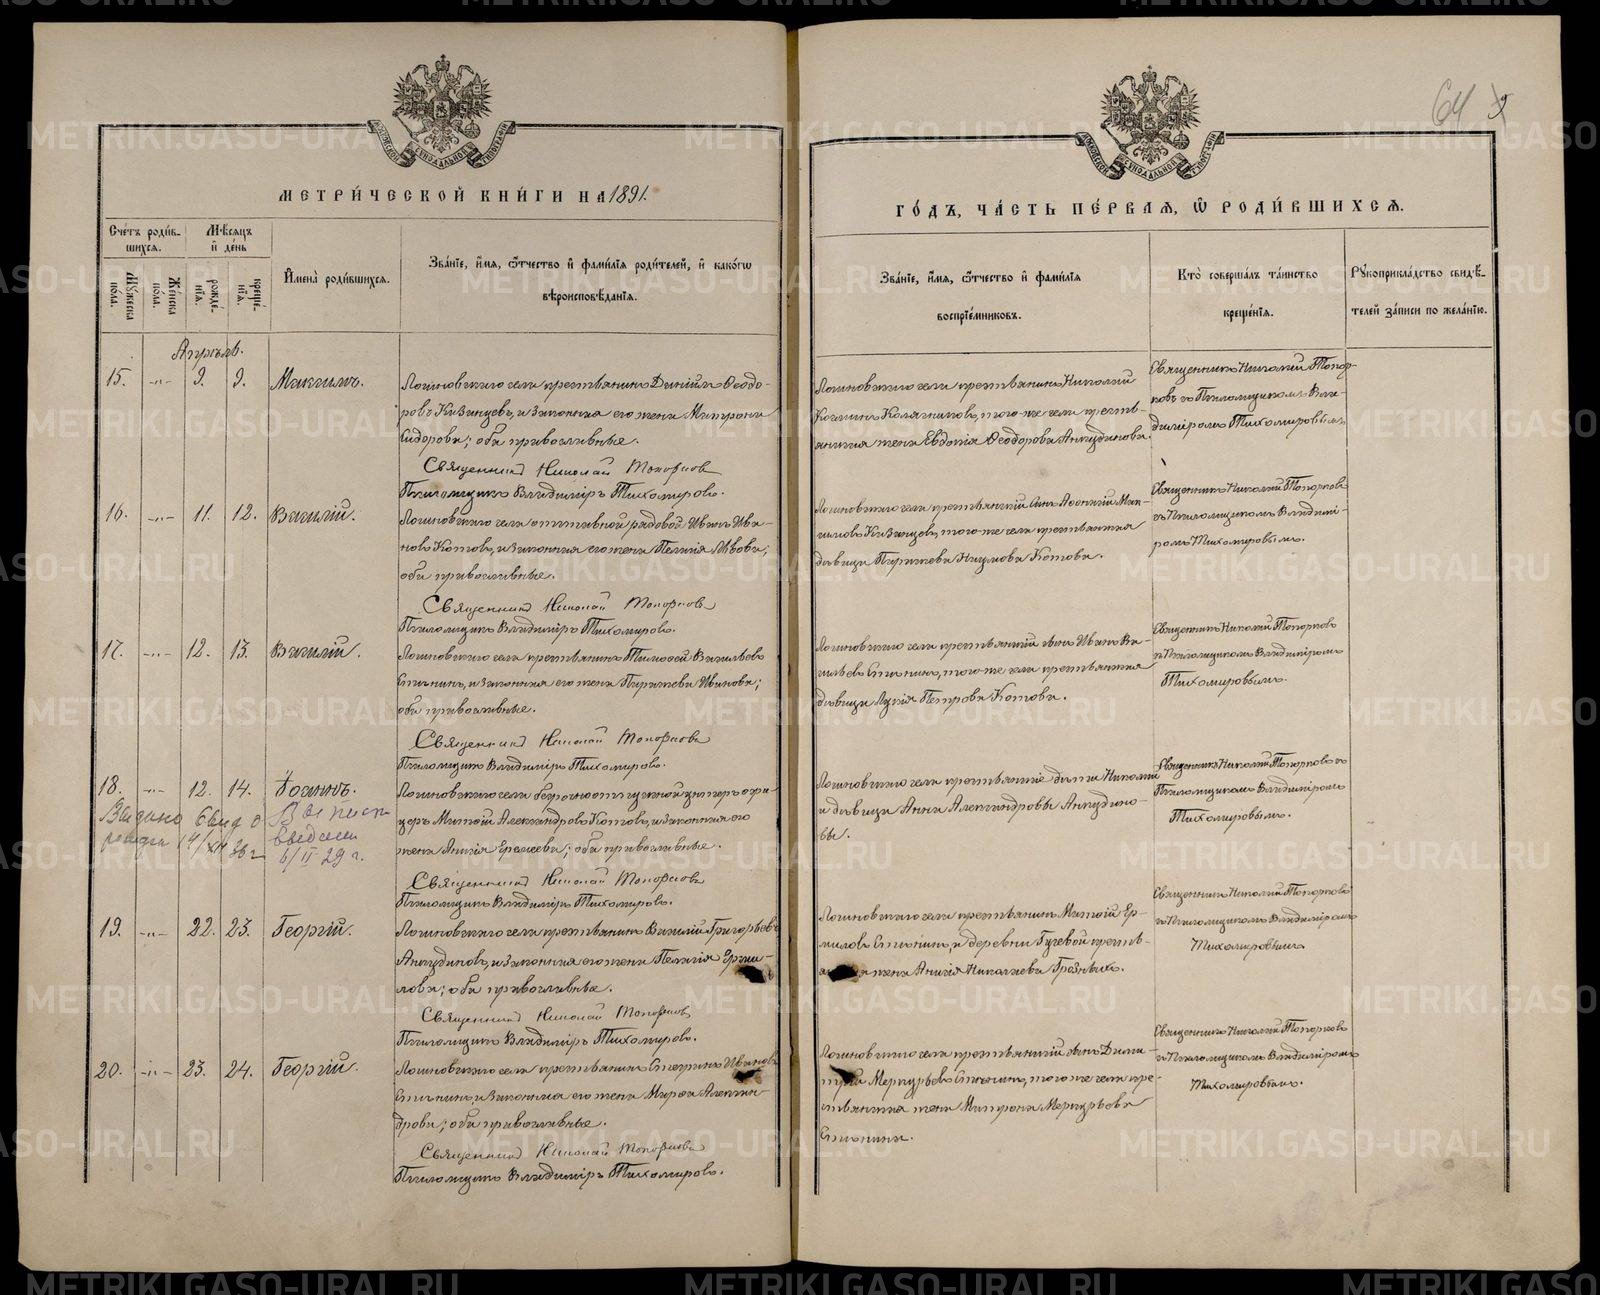 64
МЕТРИ́ЧЕСКОЙ КНИ́ГИ НА 1891.
ГО́ДЪ, ЧА́СТЬ ПЕ́РВАЯ, Ѡ РОДИ́ВШИХСЯ.
Сче́тъ роди́в-
шихся.
Му́жеска по́ла.
Же́нска по́ла.
Мѣ́сяцъ
и де́нь
рожде́-
нїя.
креще́-
нїя.
Имена̀ роди́вшихся.
Зва́нїе, и́мя, ѻ́тчество и фами́лїя роди́телей, и како́гѡ
вѣроисповѣ́данїя.
Зва́нїе, и́мя, ѻ́тчество и фами́лїя
воспрїе́мниковъ.
Кто̀ соверша́лъ та́инство
креще́нїя.
Рукоприкла́дство свидѣ́-
телей за́писи по жела́нїю.
Апрѣль.
15. -"- 9. 9. Максимъ.
Логиновскаго села крестьянинъ Дионисій Ѳеодо-
ровъ Казанцевъ, и законная его жена Матрона
Сидорова; оба православные.
Священникъ Николай Топорковъ
Псаломщикъ Владиміръ Тихомировъ.
Логиновскаго села крестьянинъ Николай
Козьминъ Колясниковъ, того-же села кресть-
янская жена Евдокія Ѳеодорова Анкудинова.
Священникъ Николай Топор-
ковъ съ Псаломщикомъ Вла-
диміромъ Тихомировымъ.
16. -"- 11. 12. Василій.
Логиновскаго села отставной рядовой Иванъ Ива-
новъ Котовъ, и законная его жена Пелагія Львова;
оба православные.
Священникъ Николай Топорковъ
Псаломщикъ Владиміръ Тихомировъ.
Логиновскаго села крестьянскій сынъ Аѳонасій Мак-
симовъ Казанцевъ, того-же села крестьянская
дѣвица Параскева Наумова Котова.
Священникъ Николай Топорковъ
съ Псаломщикомъ Владимі-
ромъ Тихомировымъ.
17. -"- 12. 13. Василій.
Логиновскаго села крестьянинъ Тимоѳей Васильевъ
Стѣнинъ, и законная его жена Параскева Иванова;
оба православные.
Священникъ Николай Топорковъ
Псаломщикъ Владиміръ Тихомировъ.
Логиновскаго села крестьянскій сынъ Иванъ Ва-
сильевъ Стѣнинъ, того-же села крестьянская
дѣвица Лукія Петрова Котова.
Священникъ Николай Топорковъ
съ Псаломщикомъ Владиміромъ
Тихомировымъ.
18. -"- 12. 14. Іоаннъ.
Выдано свид о
рожден 14/XII 36 г
Вып
введены
6/II 29 г.
Логиновскаго села безсрочноотпускной унтеръ офи-
церъ Матѳій Александровъ Котовъ, и законная его
жена Анисія Ереміева; оба православные.
Священникъ Николай Топорковъ
Псаломщикъ Владиміръ Тихомировъ.
Логиновскаго села крестьянскіе дѣти Николай
и дѣвица Анна Александровы Анкудино-
вы.
Священникъ Николай Топорковъ съ
Псаломщикомъ Владиміромъ
Тихомировымъ.
19. -"- 22. 23. Георгій.
Логиновскаго села крестьянинъ Василій Григорьевъ
Анкудиновъ, и законная его жена Пелагія Ерми-
лова; оба православные.
Священникъ Николай Топорковъ
Псаломщикъ Владиміръ Тихомировъ.
Логиновскаго села крестьянинъ Матѳій Ер-
миловъ Стѣнинъ, и деревни Гусевой кресть-
жена Анисія Николаева Грязныхъ.
Священникъ Николай Топорковъ
съ Псаломщикомъ Владиміромъ
Тихомировымъ
20. -"- 23. 24. Георгій.
Логиновскаго села крестьянинъ Спиридонъ Ивановъ
Стѣнинъ, и законная его жена Марѳа Алексан-
дрова; оба православные.
Священникъ Николай Топорковъ
Псаломщикъ Владиміръ Тихомировъ.
Логиновскаго села крестьянскій сынъ Дими-
трій Меркурьевъ Стѣнинъ, того же села кре-
стьянская жена Матрона Меркурьева
Стѣнина.
Священникъ Николай Топорковъ
съ Псаломщикомъ Владиміромъ
Тихомировымъ.
METRIKI.GASO-URAL.RU